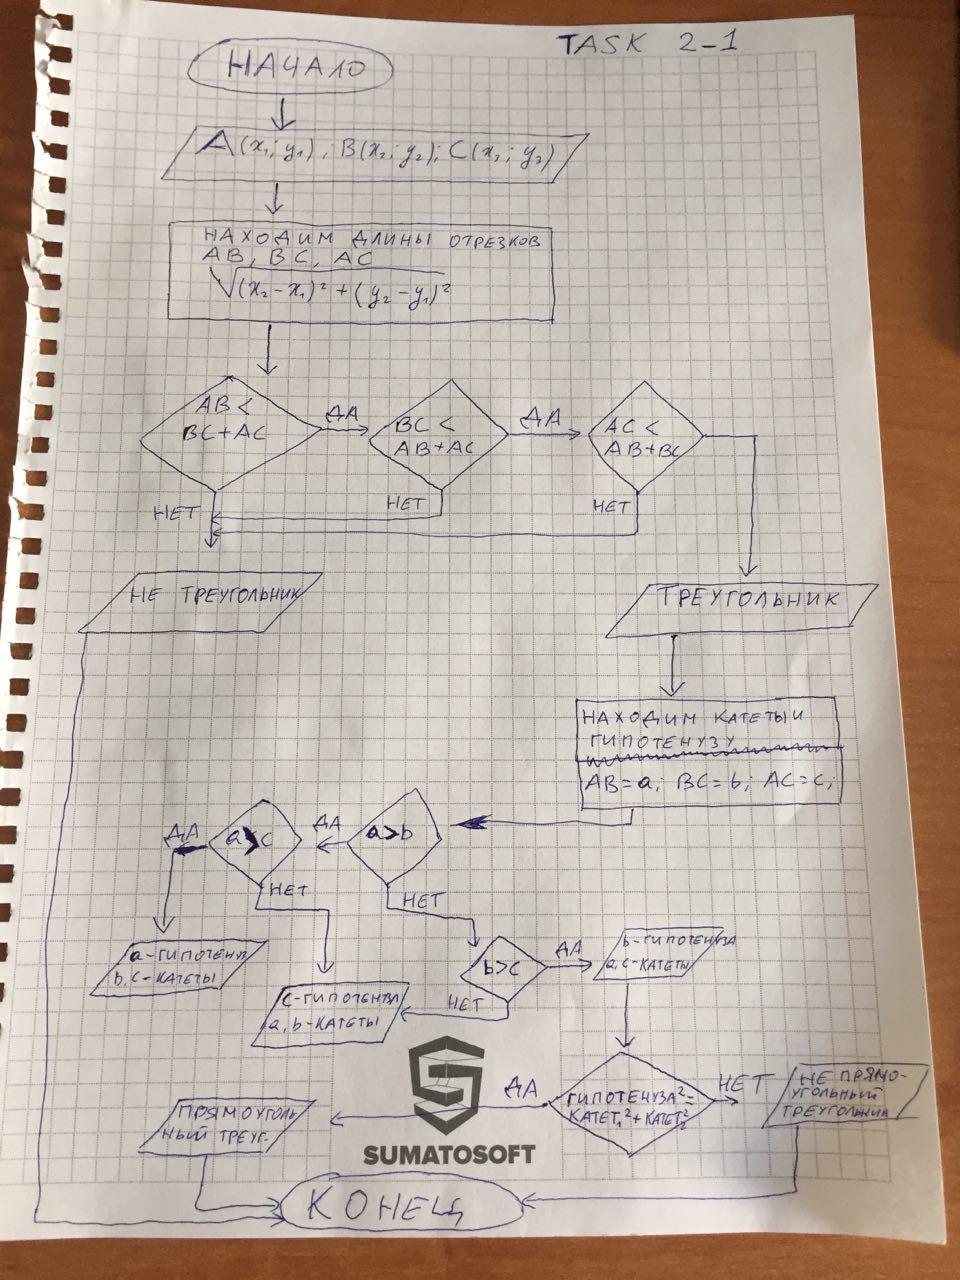 TASK 2-1
НАЧАЛО
A(x₁; y₁), B(x₂; y₂); C(x₃; y₃)
НАХОДИМ ДЛИНЫ ОТРЕЗКОВ
AB, BC, AC
√(x₂-x₁)² + (y₂-y₁)²
AB <
BC+AC
ДА
BC <
AB+AC
ДА
AC <
AB+BC
НЕТ
НЕТ
НЕТ
НЕ ТРЕУГОЛЬНИК
ТРЕУГОЛЬНИК
НАХОДИМ КАТЕТЫ И
ГИПОТЕНУЗУ
AB=a; BC=b; AC=c;
ДА
a>c
ДА
a>b
НЕТ
НЕТ
a-ГИПОТЕНУЗ
b,c-КАТЕТЫ
b>c
ДА
b-ГИПОТЕНУЗА
a,c-КАТЕТЫ
НЕТ
c-ГИПОТЕНУЗА
a,b-КАТЕТЫ
SUMATOSOFT
ГИПОТЕНУЗА²=
КАТЕТ₁²+КАТЕТ₂²
ДА
НЕТ
ПРЯМОУГОЛЬ
НЫЙ ТРЕУГ.
НЕ ПРЯМО-
УГОЛЬНЫЙ
ТРЕУГОЛЬНИК
КОНЕЦ